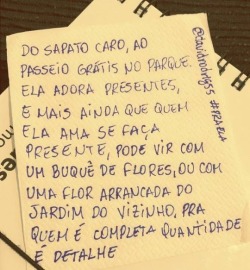 DO SAPATO CARO, AO
PASSEIO GRÁTIS NO PARQUE.
ELA ADORA PRESENTES,
E MAIS AINDA QUE QUEM
ELA AMA SE FAÇA
PRESENTE, PODE VIR COM
UM BUQUÊ DE FLORES, OU COM
UMA FLOR ARRANCADA DO
JARDIM DO VIZINHO, PRA
QUEM É COMPLETA QUANTIDADE
É DETALHE
#PRAELA